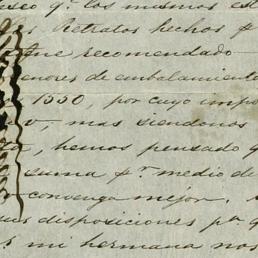 eseo qe. los mismos est
los Retratos hechos p
que recomendado
enores de embalamiento
1550, por cuyo impo
o, mas siendonos
to, hemos pensado q
suma pr. medio de
convenga mejor.
us disposiciones pa. q
s mi hermana nos